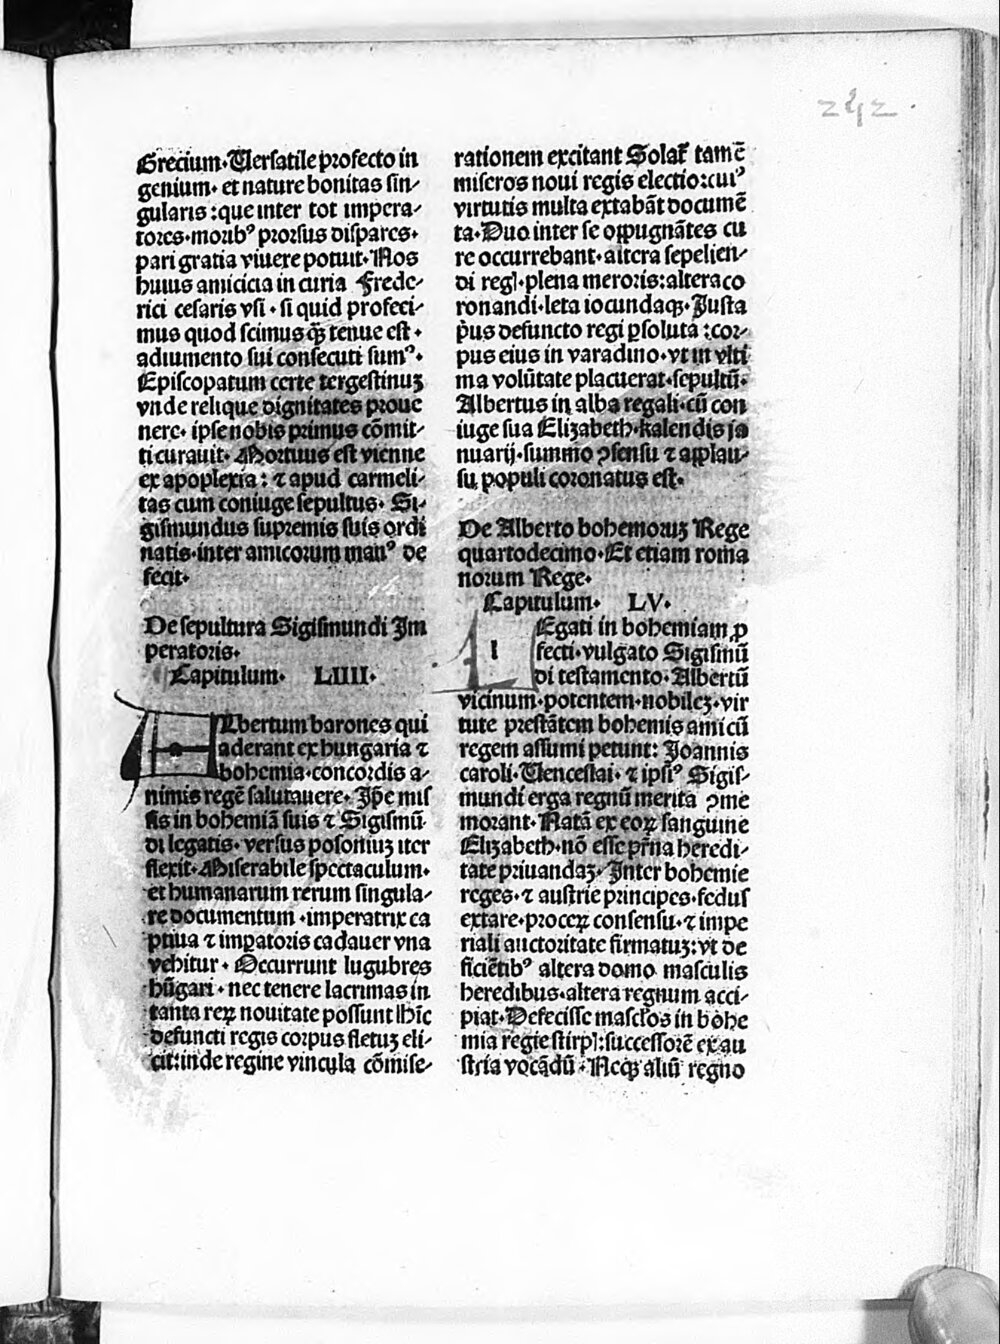 242
Grecium. Versatile profecto in
genium. et nature bonitas sin-
gularis: que inter tot impera-
tores. moribꝰ prorsus dispares.
pari gratia viuere potuit. Nos
huius amicicia in curia Frede-
rici cesaris vsi. si quid profeci-
mus quod scimus qȝ tenue est.
adiumento sui consecuti sumꝰ.
Episcopatum certe tergestinuȝ
vnde relique dignitates proue
nere. ipse nobis primus cōmit-
ti curauit. Mortuus est vienne
ex apoplexia: ⁊ apud carmeli-
tas cum coniuge sepultus. Si-
gismundus supremis suis ordi
natis. inter amicorum manꝰ de
fecit.
De sepultura Sigismundi Im
peratoris.
Capitulum. LIIII.
ALbertum barones qui
aderant ex hungaria ⁊
bohemia. concordis a-
nimis regē salutauere. Ip̄e mis
sis in bohemiā suis ⁊ Sigismū
di legatis. versus posoniuȝ iter
flexit. Miserabile spectaculum.
et humanarum rerum singula-
re documentum. imperatrix ca
ptiua ⁊ imꝑatoris cadauer vna
vehitur. Occurrunt lugubres
hūgari. nec tenere lacrimas in
tanta reꝝ nouitate possunt hīc
defuncti regis corpus fletuȝ eli-
cit: inde regine vincula cōmise-
rationem excitant Solat̄ tamē
miseros noui regis electio: cuiꝰ
virtutis multa extabāt documē
ta. Duo inter se oppugnātes cu
re occurrebant. altera sepelien-
di regꝭ. plena meroris: altera co
ronandi. leta iocundaqȝ. Iusta
pͥus defuncto regi ꝑsoluta: cor-
pus eius in varadino. vt in vlti
ma volūtate placuerat. sepultū.
Albertus in alba regali. cū con
iuge sua Elizabeth. kalendis ja
nuarij. summo ꝯsensu ⁊ applau-
su populi coronatus est.
De Alberto bohemoruȝ Rege
quartodecimo. Et etiam roma
norum Rege.
Capitulum. LV.
lEgati in bohemiam ꝓ
fecti. vulgato Sigismū
di testamento. Albertū
vicinum. potentem. nobileȝ. vir
tute prestātem bohemis amicū
regem assumi petunt: Joannis
caroli. Venceslai. ⁊ ipsiꝰ Sigis-
mundi erga regnū merita ꝯme
morant. Natā ex eoꝝ sanguine
Elizabeth. nō esse pr̄na heredi-
tate priuandaȝ. Inter bohemie
reges. ⁊ austrie principes. fedus
extare. proceꝝ consensu. ⁊ impe
riali auctoritate firmatuȝ: vt de
ficiētibꝰ altera domo masculis
heredibus. altera regnum acci-
piat. Defecisse mascl̓os in bohe
mia regie stirpꝭ: successorē ex au
stria vocādū. Necqȝ aliū regno